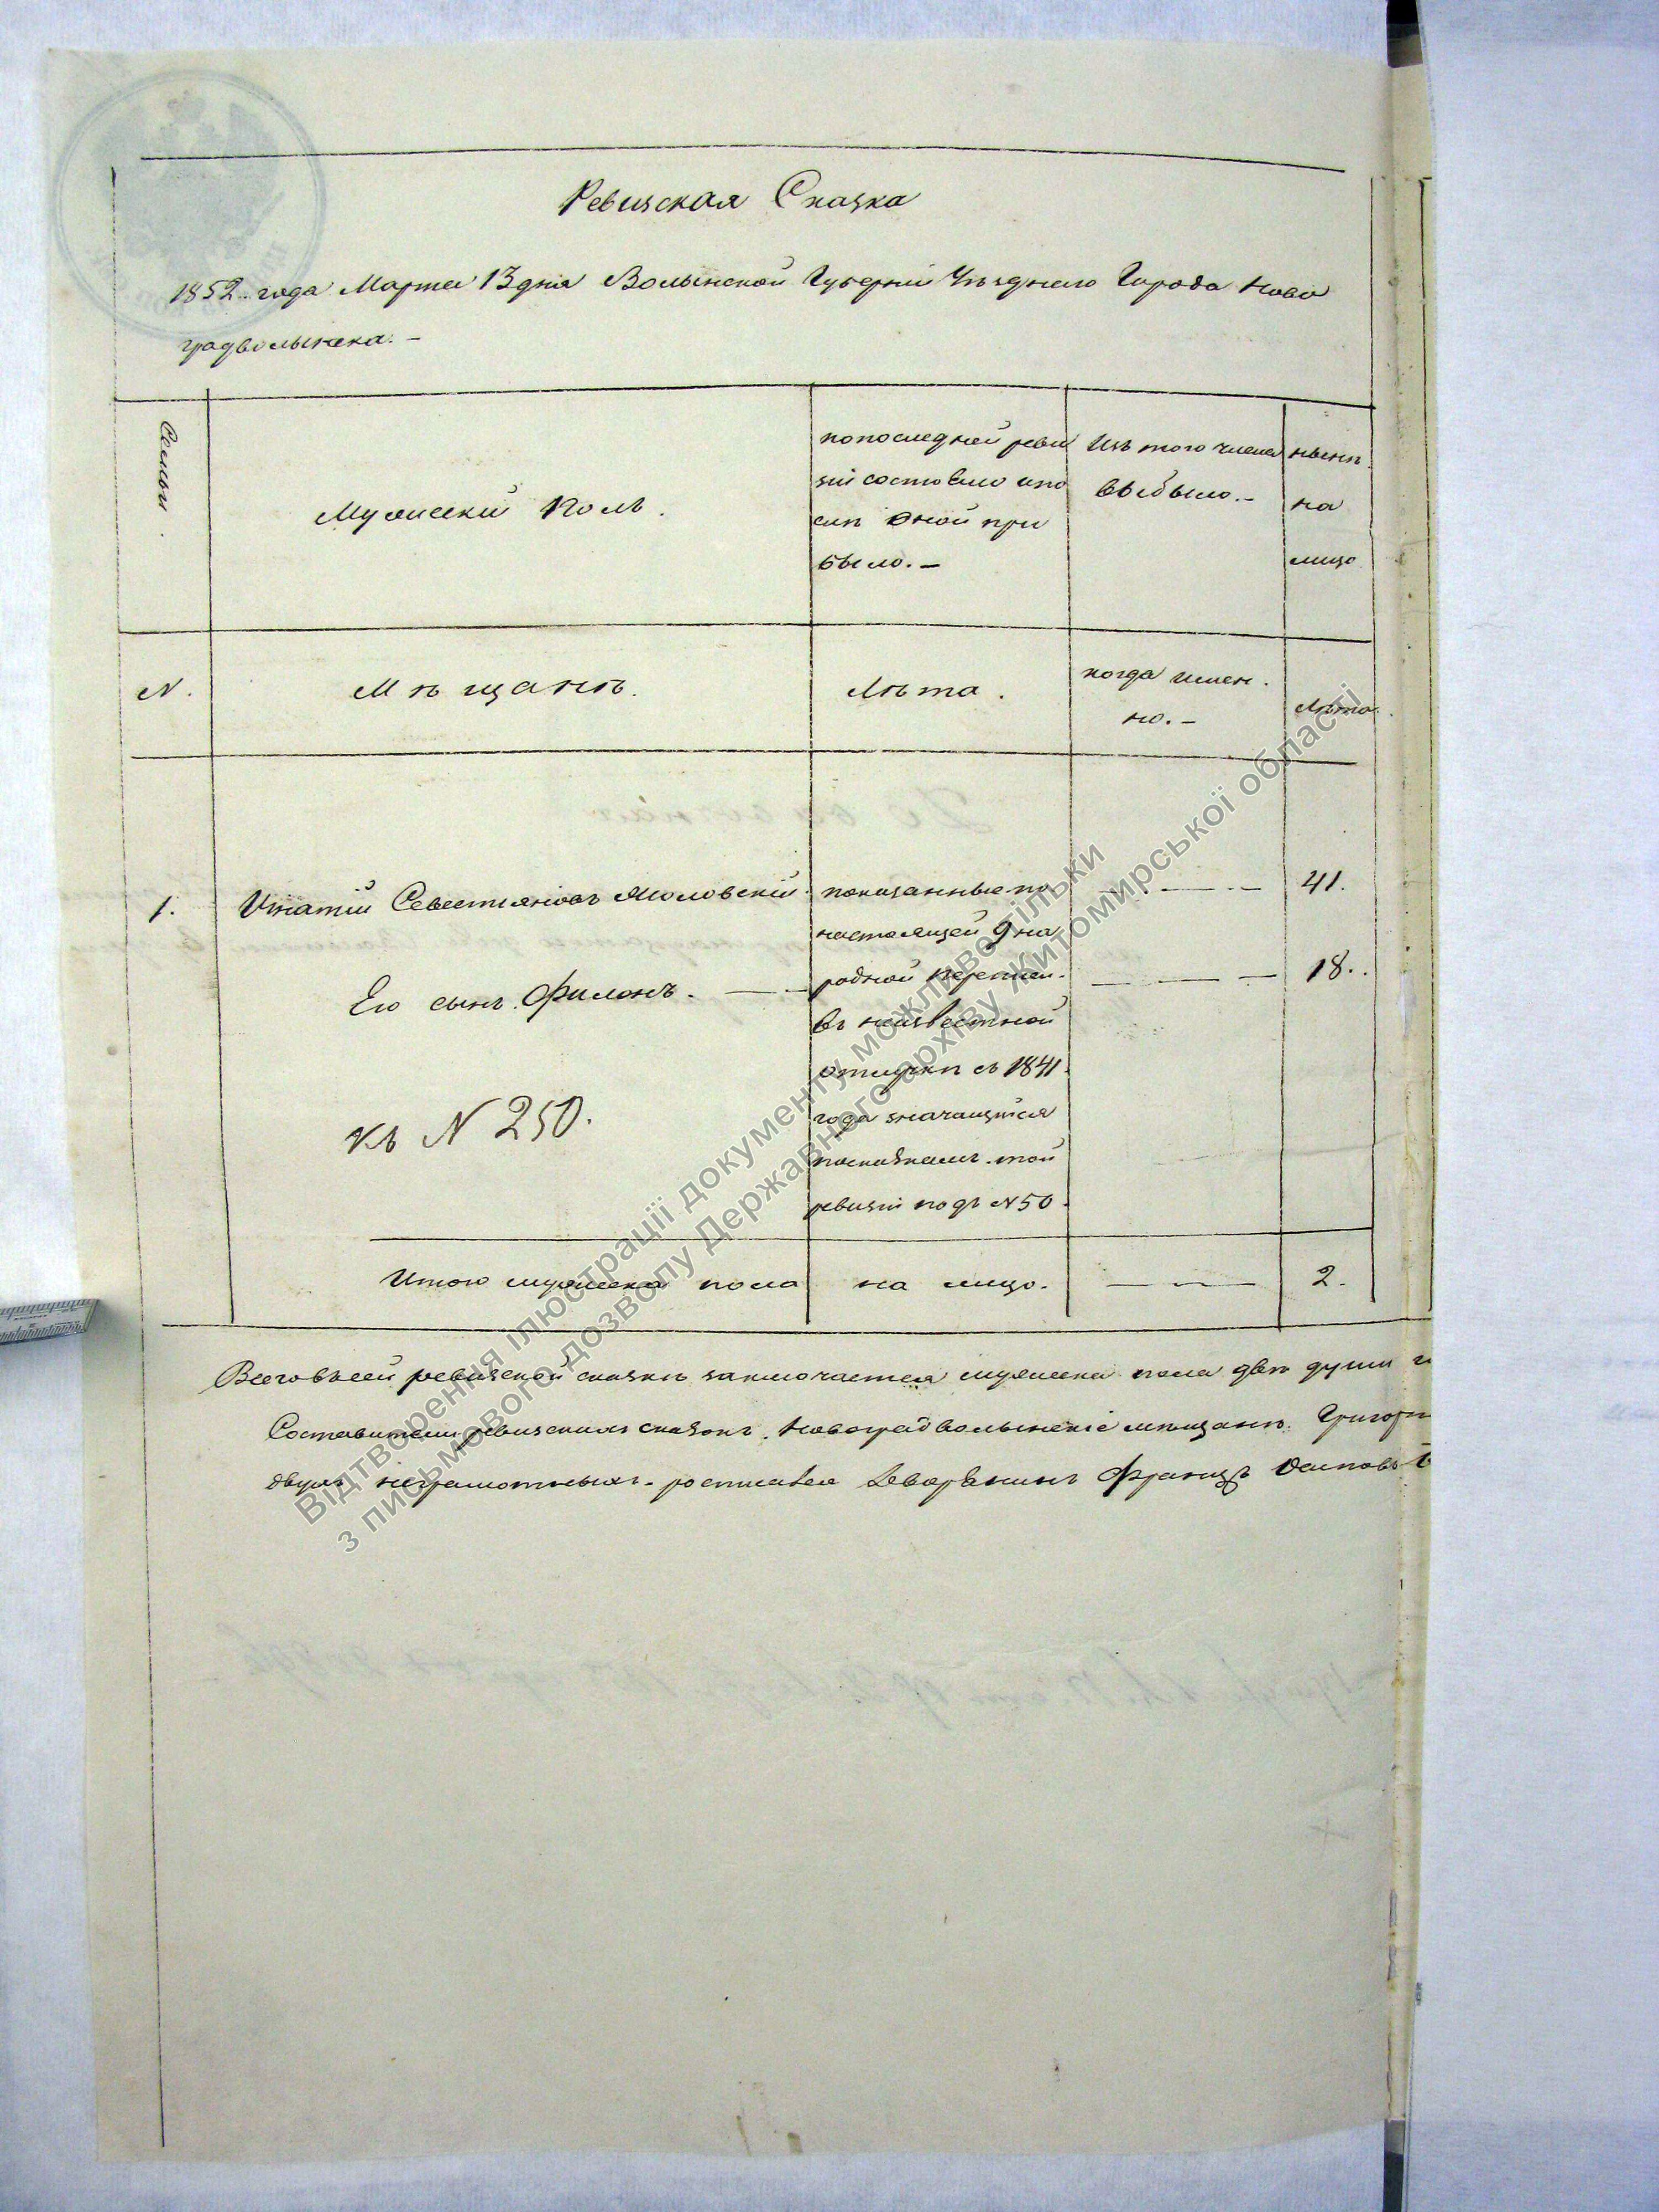 Ревизская Сказка
1852. года Марта 13 дня Волынской Губерніи Уѣзднаго Города Ново
градволынска. –
Семьи
Мужескій полъ.
попоследней реви
зіи состояло ипо
слѣ оной при
было. –
Изъ того числа
выбыло. –
нынѣ
на
лицо
N.
Мѣщанѣ.
Лѣта.
когда имен.
но. –
Лѣта.
1.
Игнатій Севестьяновъ
показанные по
настоящей 9 на
родной переписи.
въ неизвестной
отлучкѣ съ 1841.
года значащійся
посказкамъ той
ревизіи подъ N 50.
41.
Его сынъ Филонъ.
18.
къ N 250.
Итого мужеска пола
на лицо.
2.
Всеговсей ревизской сказкѣ заключается мужеска пола двѣ души
Составители ревизскихъ сказокъ. Новоградволынскіе мѣщанѣ. Григорій
двухъ неграмотныхъ росписался Дворянинъ Францъ Осиповъ
Відтворення ілюстрації документу можливо тільки
з письмового дозволу Державного архіву Житомирської області